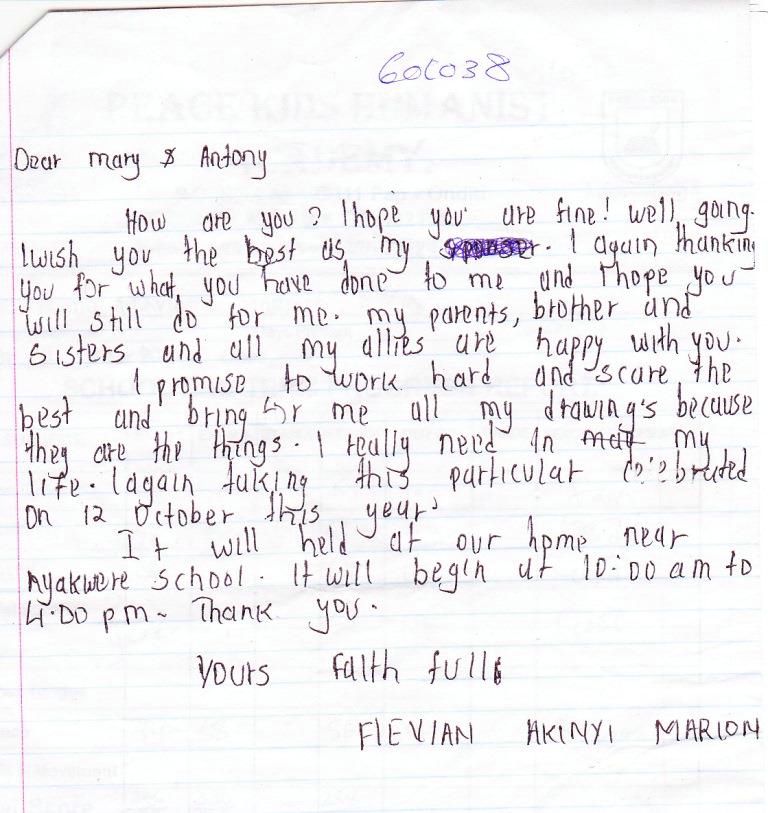 60C038
Dear mary & Antony
How are you? I hope you are fine! well going.
I wish you the best as my sponser. I again thanking
you for what you have done to me and I hope you
will still do for me. my parents, brother and
sisters and all my allies are happy with you.
I promise to work hard and scare the
best and bring for me all my drawing's because
they are the things. I really need in my
life. I again taking this particular
on 12 October this year.
It will held at our home near
Nyakwere school. It will begin at 10:00 am to
4.00 pm. Thank you.
yours faith full
FlEVIAN AKINYI MARION
PEACE KIDS HUMANIST